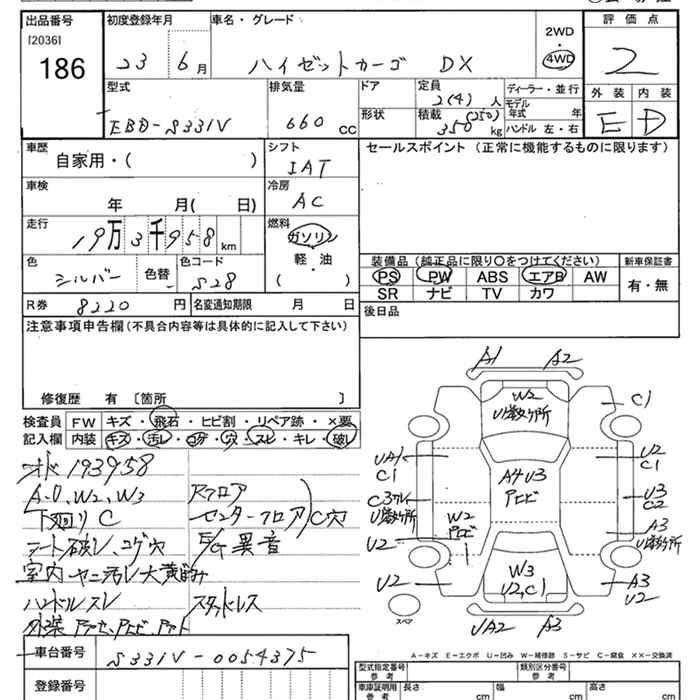 出品番号 初度登録年月 車名・グレード 評価点
[2036]
186
23 6月 ハイゼットカーゴ DX
2WD
4WD
2
型式 排気量 ドア 定員 2(4)人 ディーラー・並行 外装 内装
EBD-S331V 660 cc
形状 積載 (250) 350 kg モデル年式 年
ハンドル 左・右
E D
車歴 シフト セールスポイント (正常に機能するものに限ります)
自家用・( ) IAT
車検 冷房
年 月( 日) AC
走行 燃料
19万3千958km ガソリン
軽・油
( )
色 色コード
シルバー 色替 S28
装備品 (純正品に限り○をつけてください) 新車保証書
PS PW ABS エアB AW 有・無
SR ナビ TV カワ
R券 8220円 名変通知期限 月 日
後日品
注意事項申告欄(不具合内容等は具体的に記入して下さい)
修復歴 有 〔箇所 〕
検査員 FW キズ・飛石・ヒビ割・リペア跡・×要
記入欄 内装 キズ・汚レ・コゲ・穴・スレ・キレ・破レ
オド193958
A.U、W2、W3 Rフロア
下廻りC センターフロア C穴
シート破レ、コゲ穴 E/G異音
室内ヤニ汚レ大
ハンドルスレ スタッドレス
外装
A1 A2
W2
U多数ヶ所
C1
UA1
C1
U2
C1
A4U3
アヒビ
C3
U多数ヶ所
U3
C2
W2
アヒビ
A3
U多数ヶ所
U2
U2
W3
U2,C1
A3
U2
スペア
UA2 A3
A-キズ E-エクボ U-凹み W-補修跡 S-サビ C-腐食 XX-交換済
車台番号 S331V-0054375
登録番号
型式指定番号 参考 類別区分番号 参考
車庫証明用 参考 長さ cm 幅 cm 高さ cm